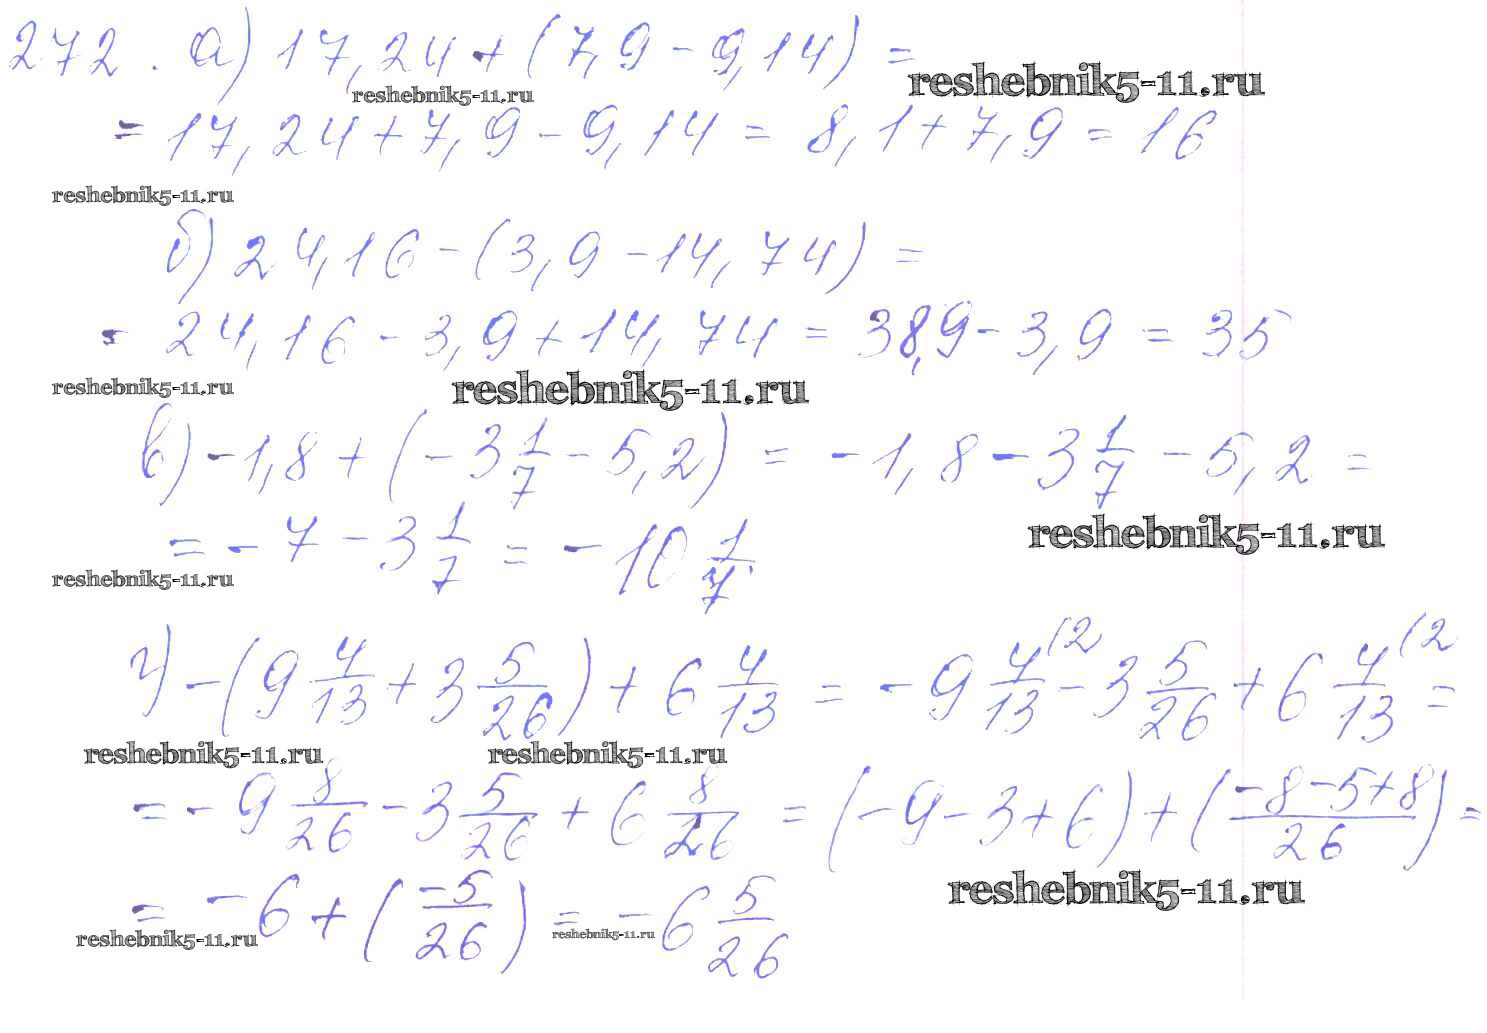 272. а) 17,24 + (7,9 - 9,14) =
reshebnik5-11.ru
reshebnik5-11.ru
= 17,24 + 7,9 - 9,14 = 8,1 + 7,9 = 16
reshebnik5-11.ru
б) 24,16 - (3,9 - 14,74) =
= 24,16 - 3,9 + 14,74 = 38,9 - 3,9 = 35
reshebnik5-11.ru
reshebnik5-11.ru
в) -1,8 + (-3 1/7 - 5,2) = -1,8 - 3 1/7 - 5,2 =
reshebnik5-11.ru
= -7 - 3 1/7 = -10 1/7
reshebnik5-11.ru
г) -(9 4/13 + 3 5/26) + 6 4/13 = -9 4/13 (2 - 3 5/26 + 6 4/13 (2 =
reshebnik5-11.ru
reshebnik5-11.ru
= -9 8/26 - 3 5/26 + 6 8/26 = (-9 - 3 + 6) + (-8-5+8/26) =
reshebnik5-11.ru
= -6 + (-5/26) = -6 5/26
reshebnik5-11.ru
reshebnik5-11.ru